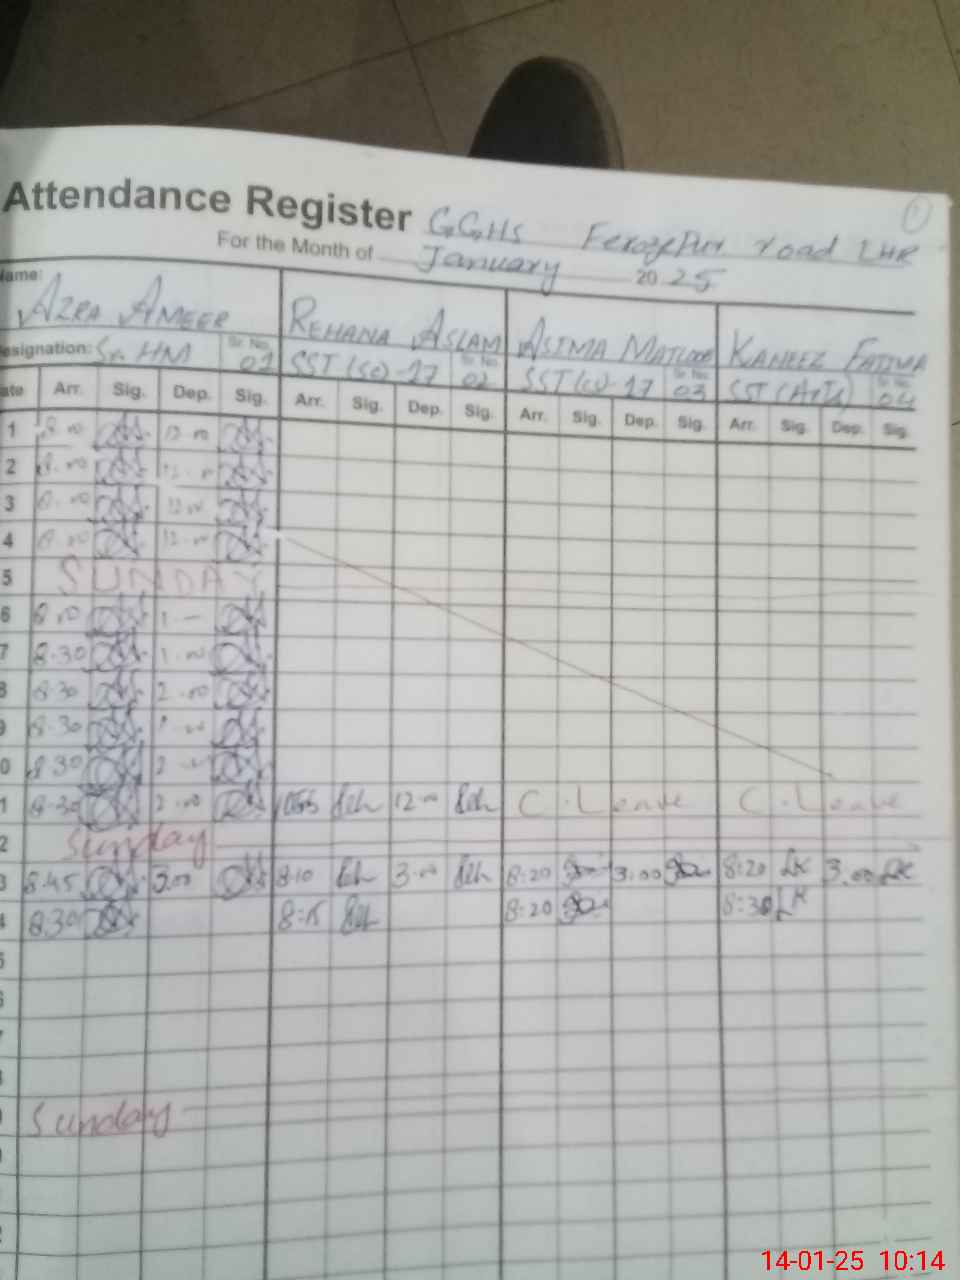 Attendance Register G.G.H.S Ferozepur road LHR
For the Month of January 2025
Name:
AZRA AMEER REHANA ASLAM ASIMA KANEEZ FATIMA
Designation: Sr. HM Sr. No. 01 SST (Sc)-17 Sr. No. 02 SST 17 Sr. No. 03 SST (Arts) Sr. No. 04
Date Arr. Sig. Dep. Sig. Arr. Sig. Dep. Sig. Arr. Sig. Dep. Sig. Arr. Sig. Dep. Sig.
1 8.00 12.00
2 8.00 12.00
3 8.00 12.00
4 8.00 12.00
5 SUNDAY
6 8.00 1.—
7 8.30 1.00
8 8.30 2.00
9 8.30
0 8.30 2
1 8.30 2.00 12.00 C. Leave C. Leave
2 Sunday
3 8.45 3.00 8:10 3.00 8:20 3.00 8:20 3.00
4 8.30 8:15 8:20 8:30
5
Sunday
14-01-25 10:14